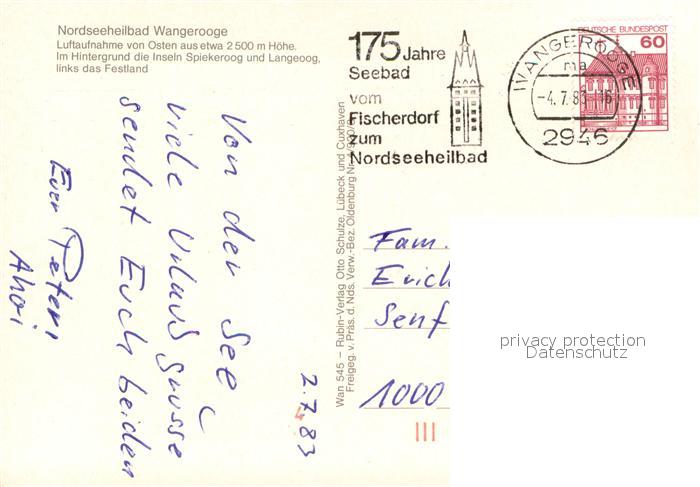 Nordseeheilbad Wangerooge
Luftaufnahme von Osten aus etwa 2 500 m Höhe.
Im Hintergrund die Inseln Spiekeroog und Langeoog,
links das Festland
175 Jahre
Seebad
vom
Fischerdorf
zum
Nordseeheilbad
WANGEROOGE
ma
-4.7.83-16
2946
DEUTSCHE BUNDESPOST
60
2.7.83
Von der See
viele Urlaubs Grüsse
sendet Euch beiden
Euer Peter,
Ahoi
Wan 545 – Rubin-Verlag Otto Schulze, Lübeck und Cuxhaven
Freigeg. v. Präs. d. Nds. Verw.-Bez. Oldenburg Nr.
Fam.
Erich
Senf
1000
privacy protection
Datenschutz